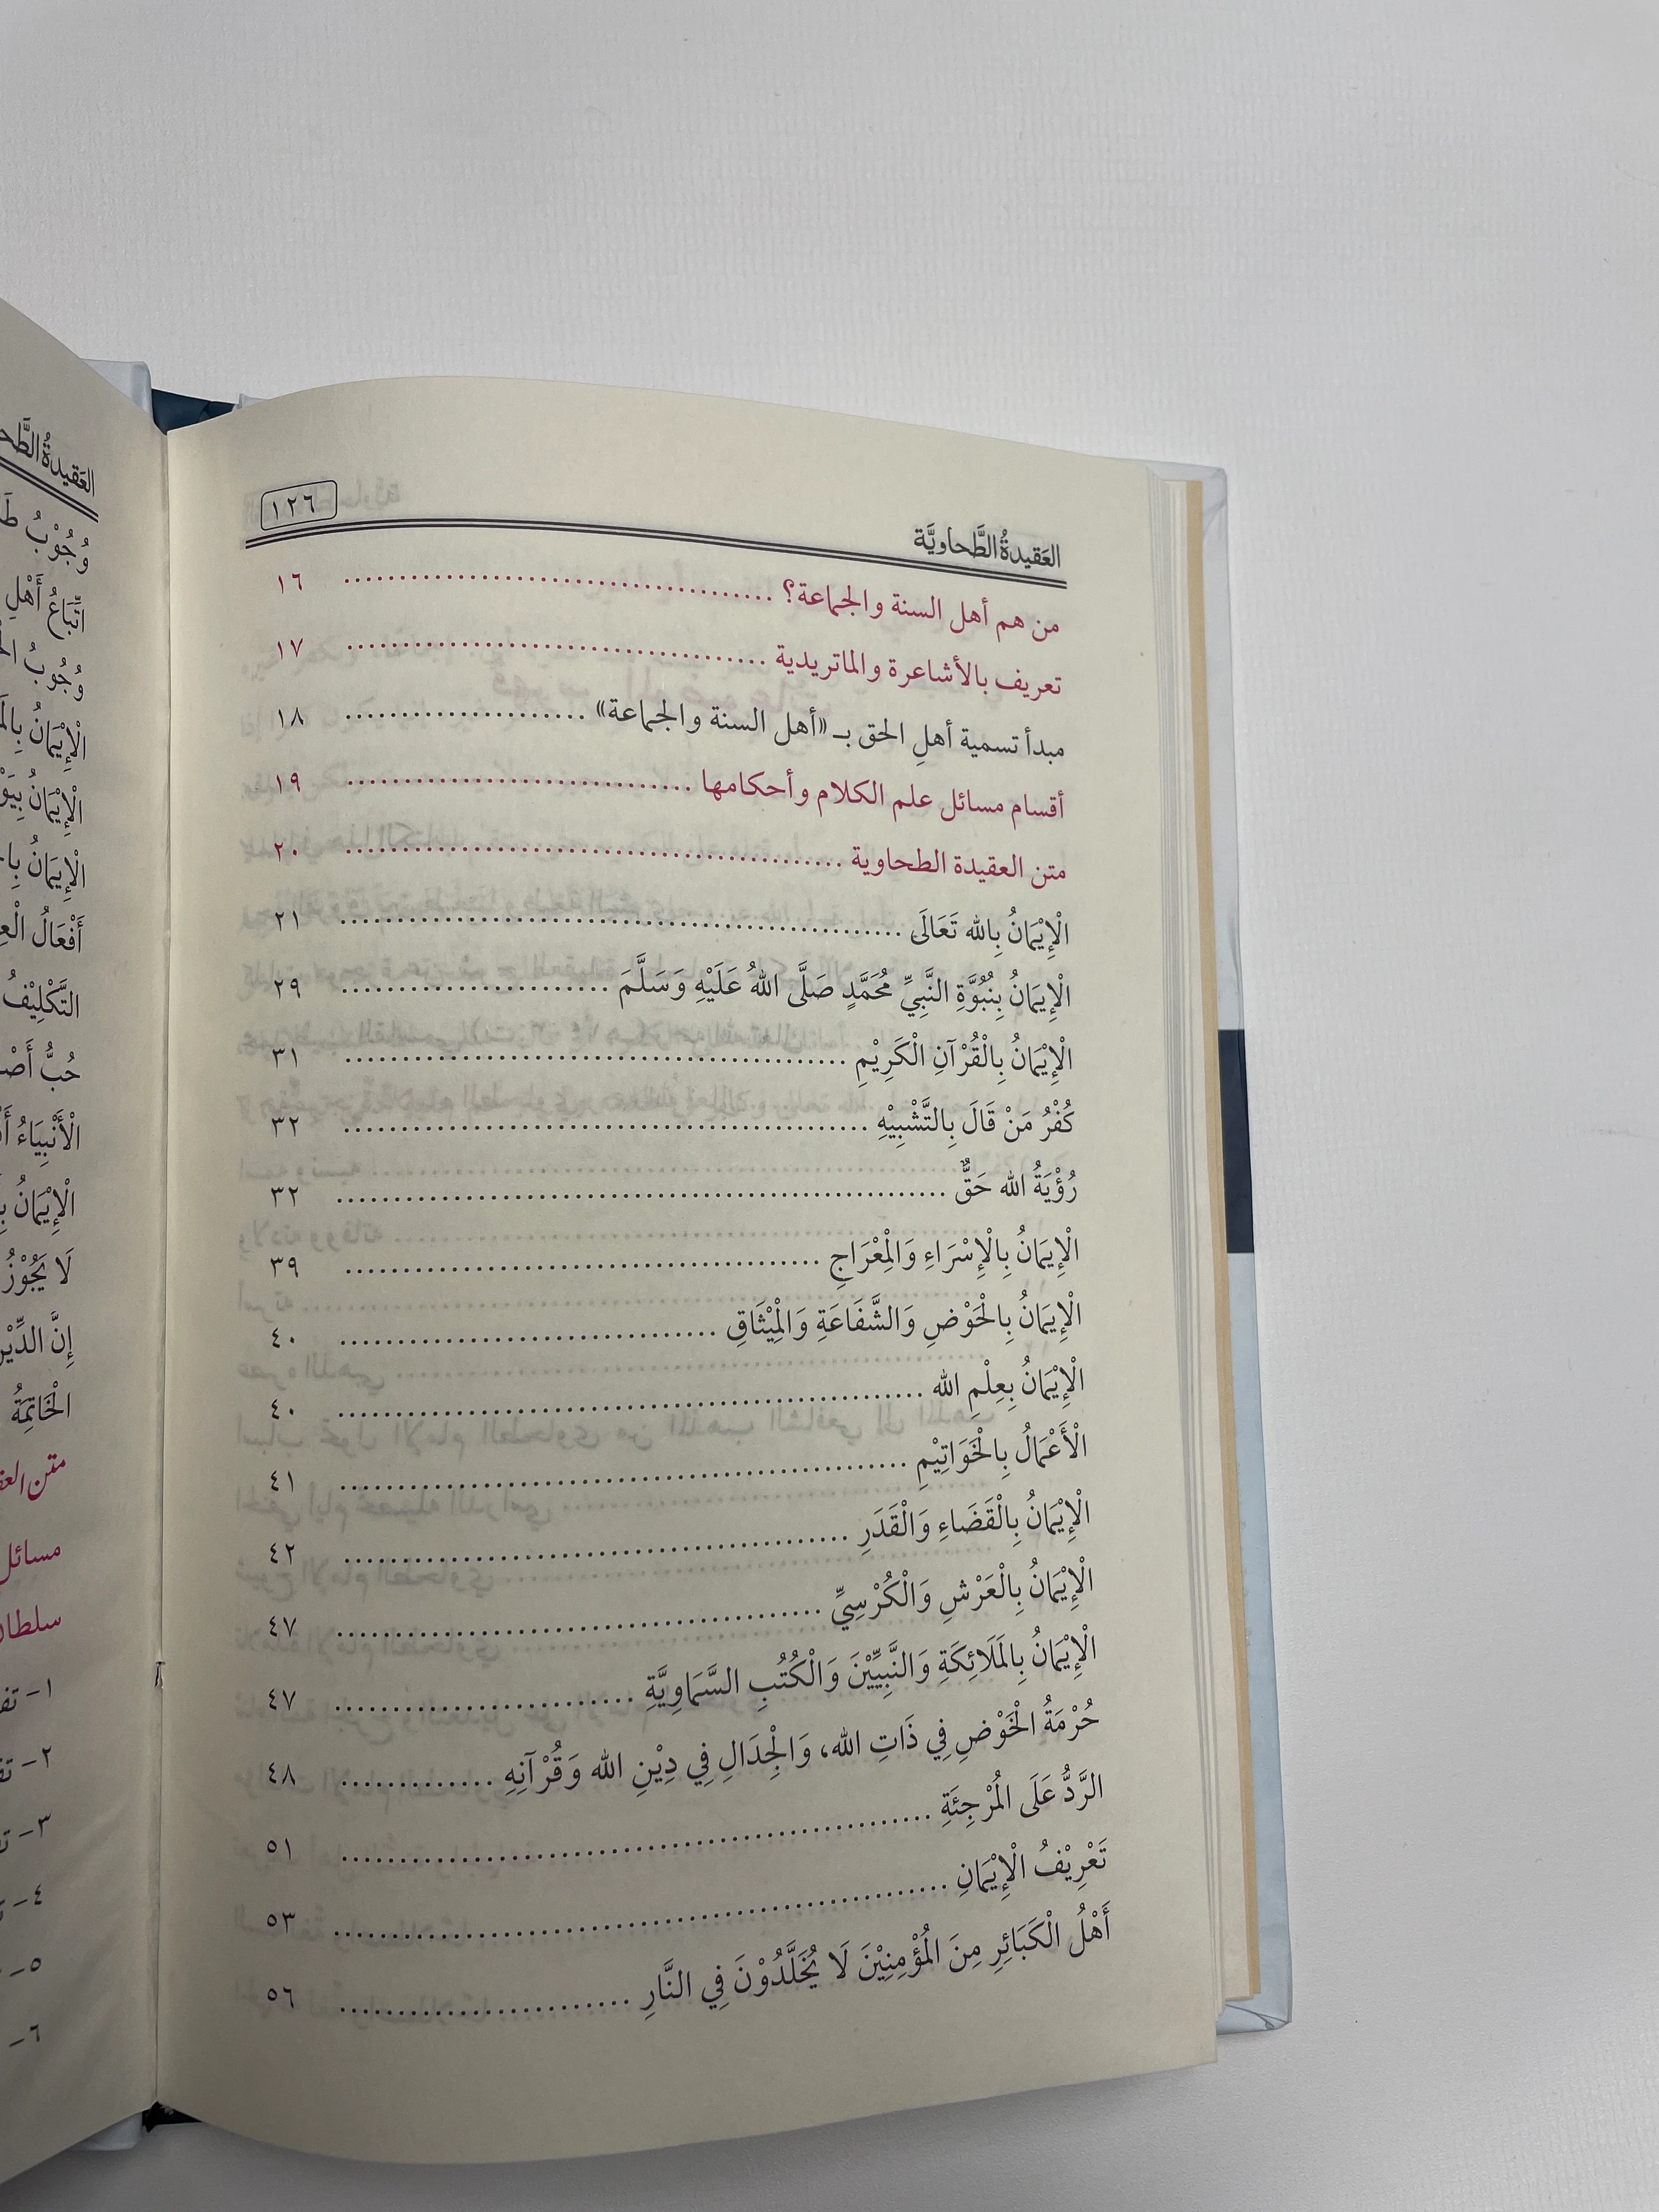 العَقيدةُ الطَّحاويَّة
١٢٦
من هم أهل السنة والجماعة؟ ........ ١٦
تعريف بالأشاعرة والماتريدية ........ ١٧
مبدأ تسمية أهلِ الحق بـ «أهل السنة والجماعة» ........ ١٨
أقسام مسائل علم الكلام وأحكامها ........ ١٩
متن العقيدة الطحاوية ........ ٢٠
الْإِيْمَانُ بِاللهِ تَعَالَى ........ ٢١
الْإِيمَانُ بِنُبُوَّةِ النَّبِيِّ مُحَمَّدٍ صَلَّى اللهُ عَلَيْهِ وَسَلَّمَ ........ ٢٩
الْإِيْمَانُ بِالْقُرْآنِ الْكَرِيْمِ ........ ٣١
كُفْرُ مَنْ قَالَ بِالتَّشْبِيْهِ ........ ٣٢
رُؤْيَةُ الله حَقٌّ ........ ٣٢
الْإِيمَانُ بِالْإِسْرَاءِ وَالْمِعْرَاجِ ........ ٣٩
الْإِيمَانُ بِالْحَوْضِ وَالشَّفَاعَةِ وَالْمِيْثَاقِ ........ ٤٠
الْإِيْمَانُ بِعِلْمِ الله ........ ٤٠
الْأَعْمَالُ بِالْخَوَاتِيْمِ ........ ٤١
الْإِيْمَانُ بِالْقَضَاءِ وَالْقَدَرِ ........ ٤٢
الْإِيْمَانُ بِالْعَرْشِ وَالْكُرْسِيِّ ........ ٤٧
الْإِيْمَانُ بِالمَلَائِكَةِ وَالنَّبِيِّيْنَ وَالْكُتُبِ السَّمَاوِيَّةِ ........ ٤٧
حُرْمَةُ الْخَوْضِ فِي ذَاتِ الله، وَالْجِدَالِ فِي دِيْنِ الله وَقُرْآنِهِ ........ ٤٨
الرَّدُّ عَلَى الْمُرْجِئَةِ ........ ٥١
تَعْرِيْفُ الْإِيْمَانِ ........ ٥٣
أَهْلُ الْكَبَائِرِ مِنَ الْمُؤْمِنِيْنَ لَا يُخَلَّدُوْنَ فِي النَّارِ ........ ٥٦
العَقيدةُ
وُجُوْبُ
اتِّبَاعُ أَهْلِ
وُجُوبُ
الْإِيْمَانُ
الْإِيْمَانُ
الْإِيمَانُ
أَفْعَالُ
التَّكْلِيْفُ
حُبُّ
الْأَنْبِيَاءُ
الْإِيْمَانُ
لَا يَجُوْزُ
إِنَّ
الْخَاتِمَةُ
متن
مسائل
١-
٢-
٣-
٤-
٥-
٦-